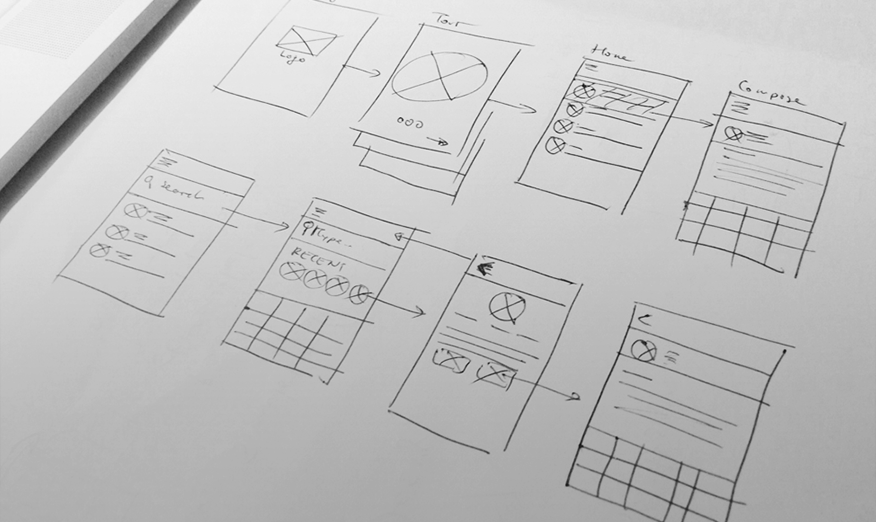 Logo
Tour
Home
Compose
Search
Type...
RECENT